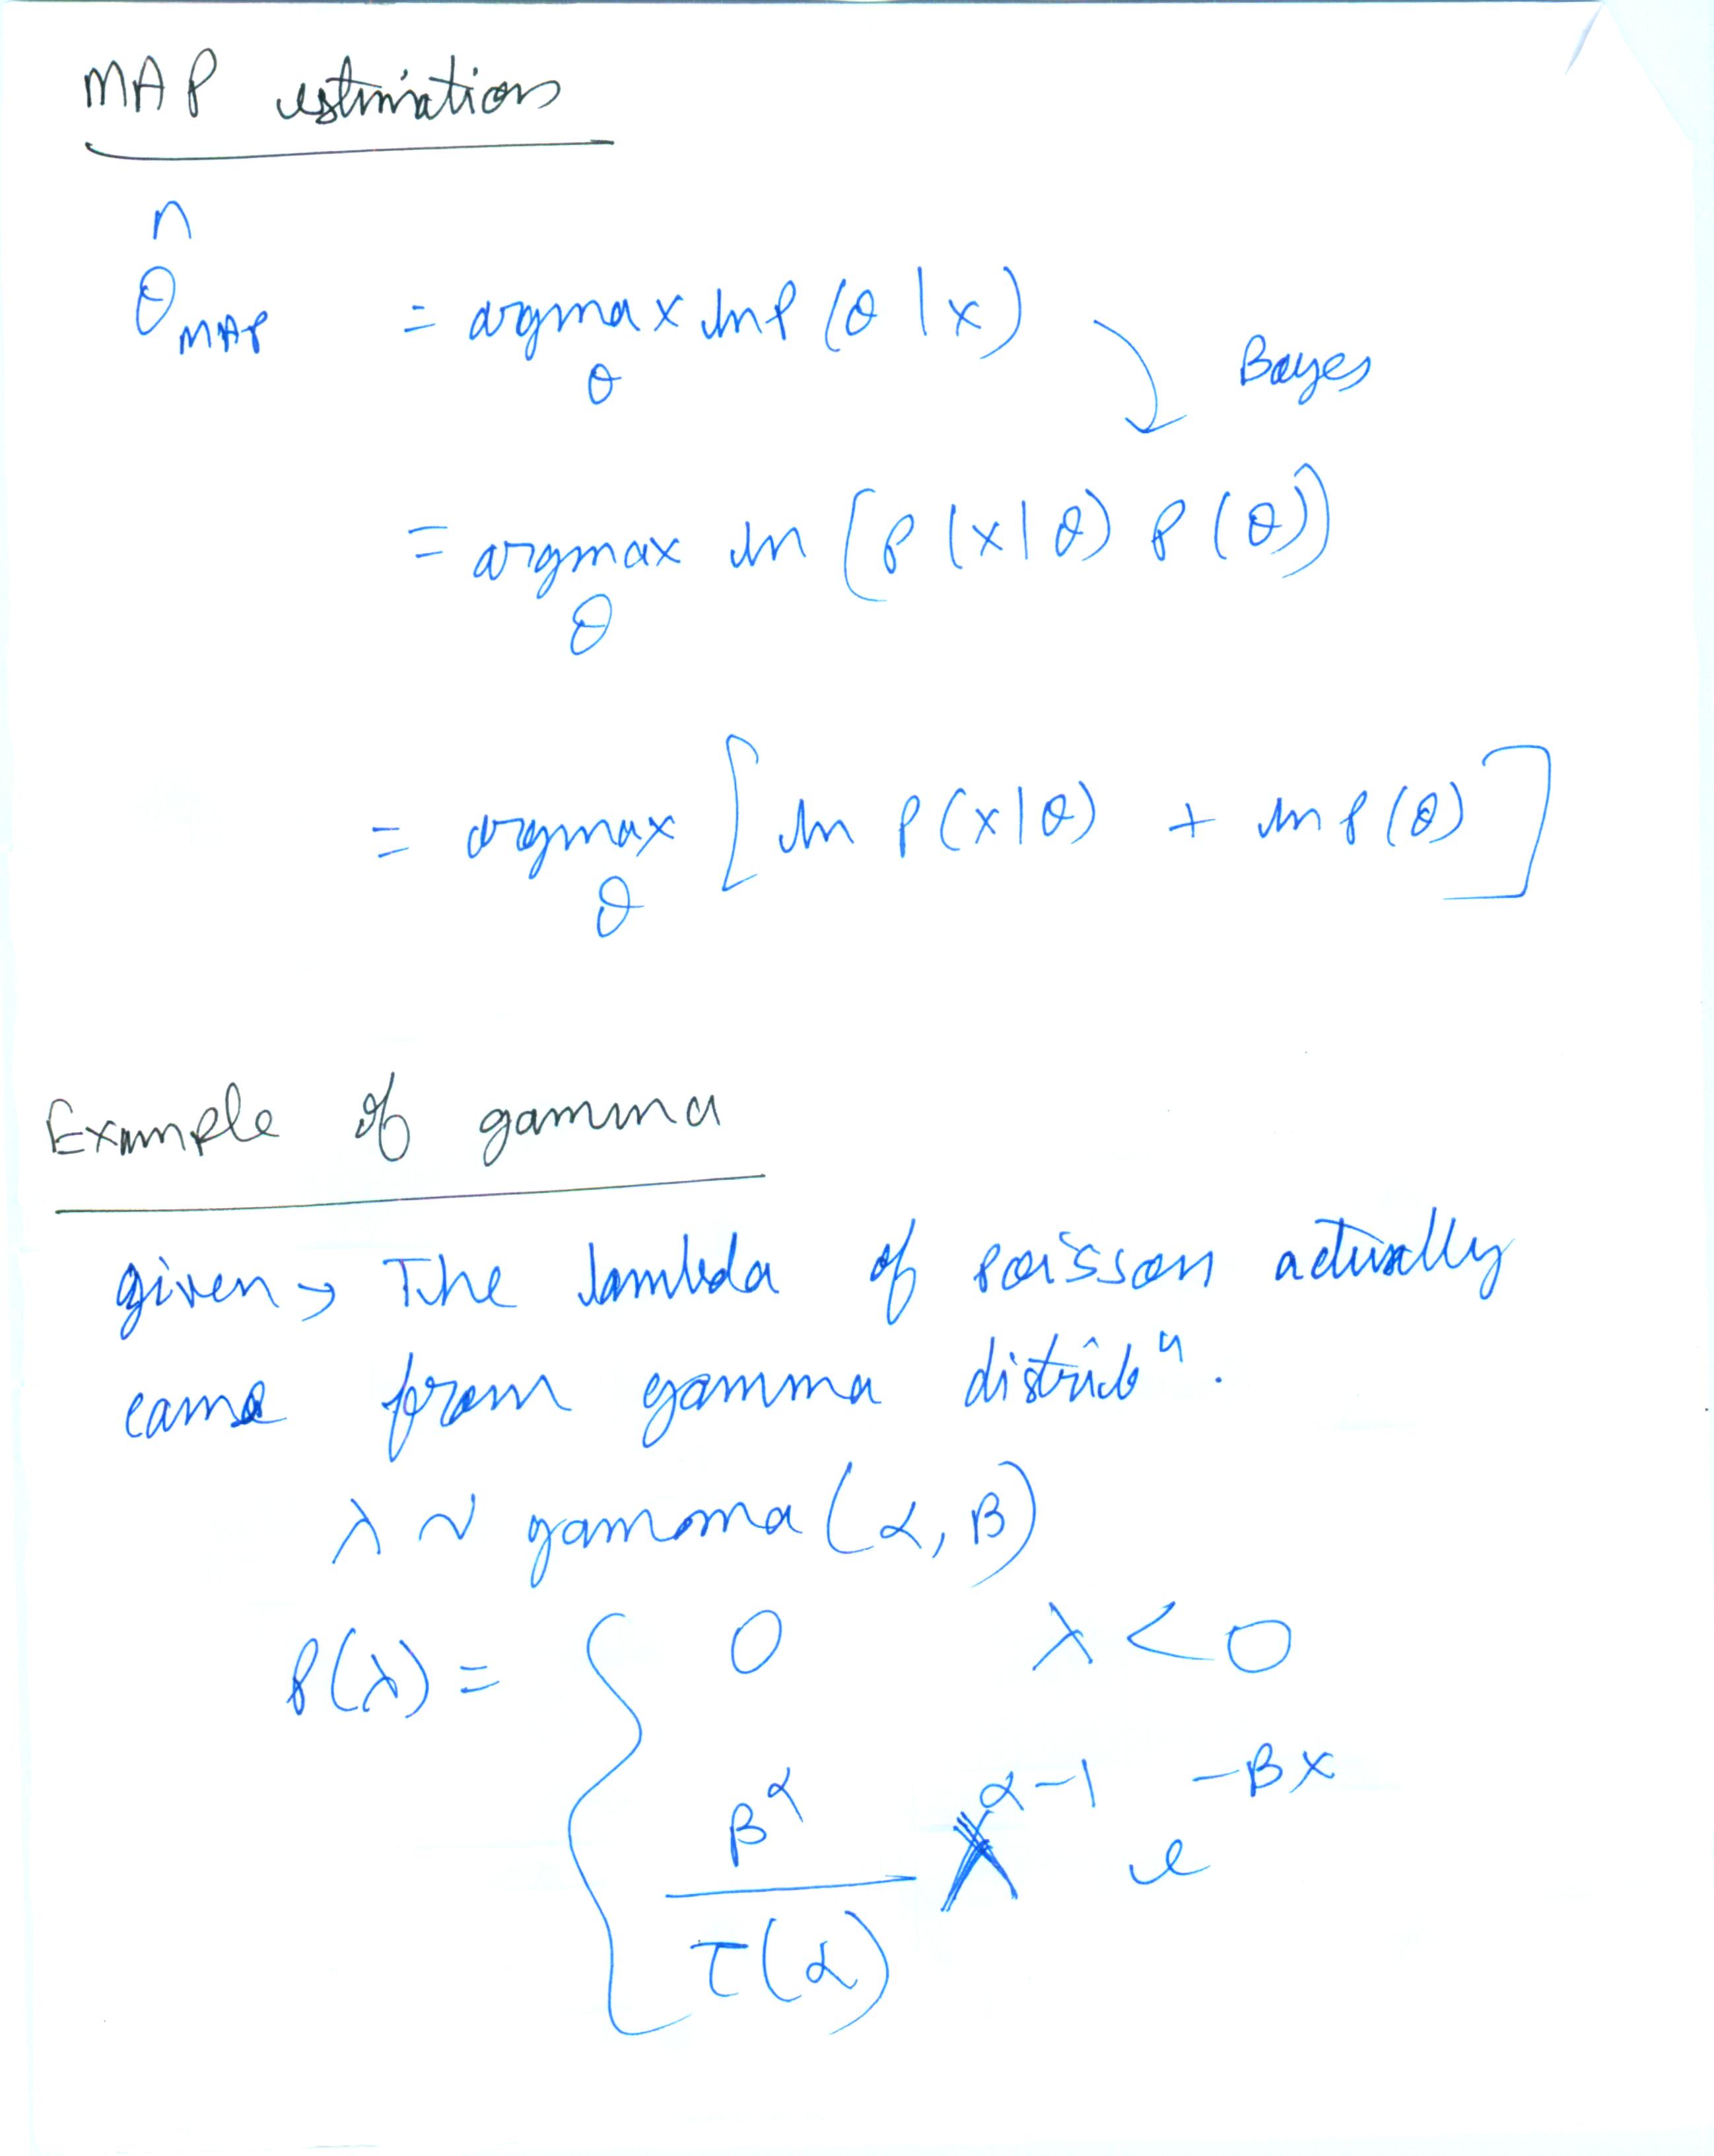 MAP estimation
θ̂_MAP = argmax_θ ln P(θ|x)
Bayes
= argmax_θ ln (P(x|θ) P(θ))
= argmax_θ [ln P(x|θ) + ln P(θ)]
Example of gamma
given → The lambda of poisson actually
came from gamma distribⁿ.
λ ~ gamma(α, β)
P(λ) = { 0 λ<0
β^α / τ(α) λ^(α-1) e^(-βx)